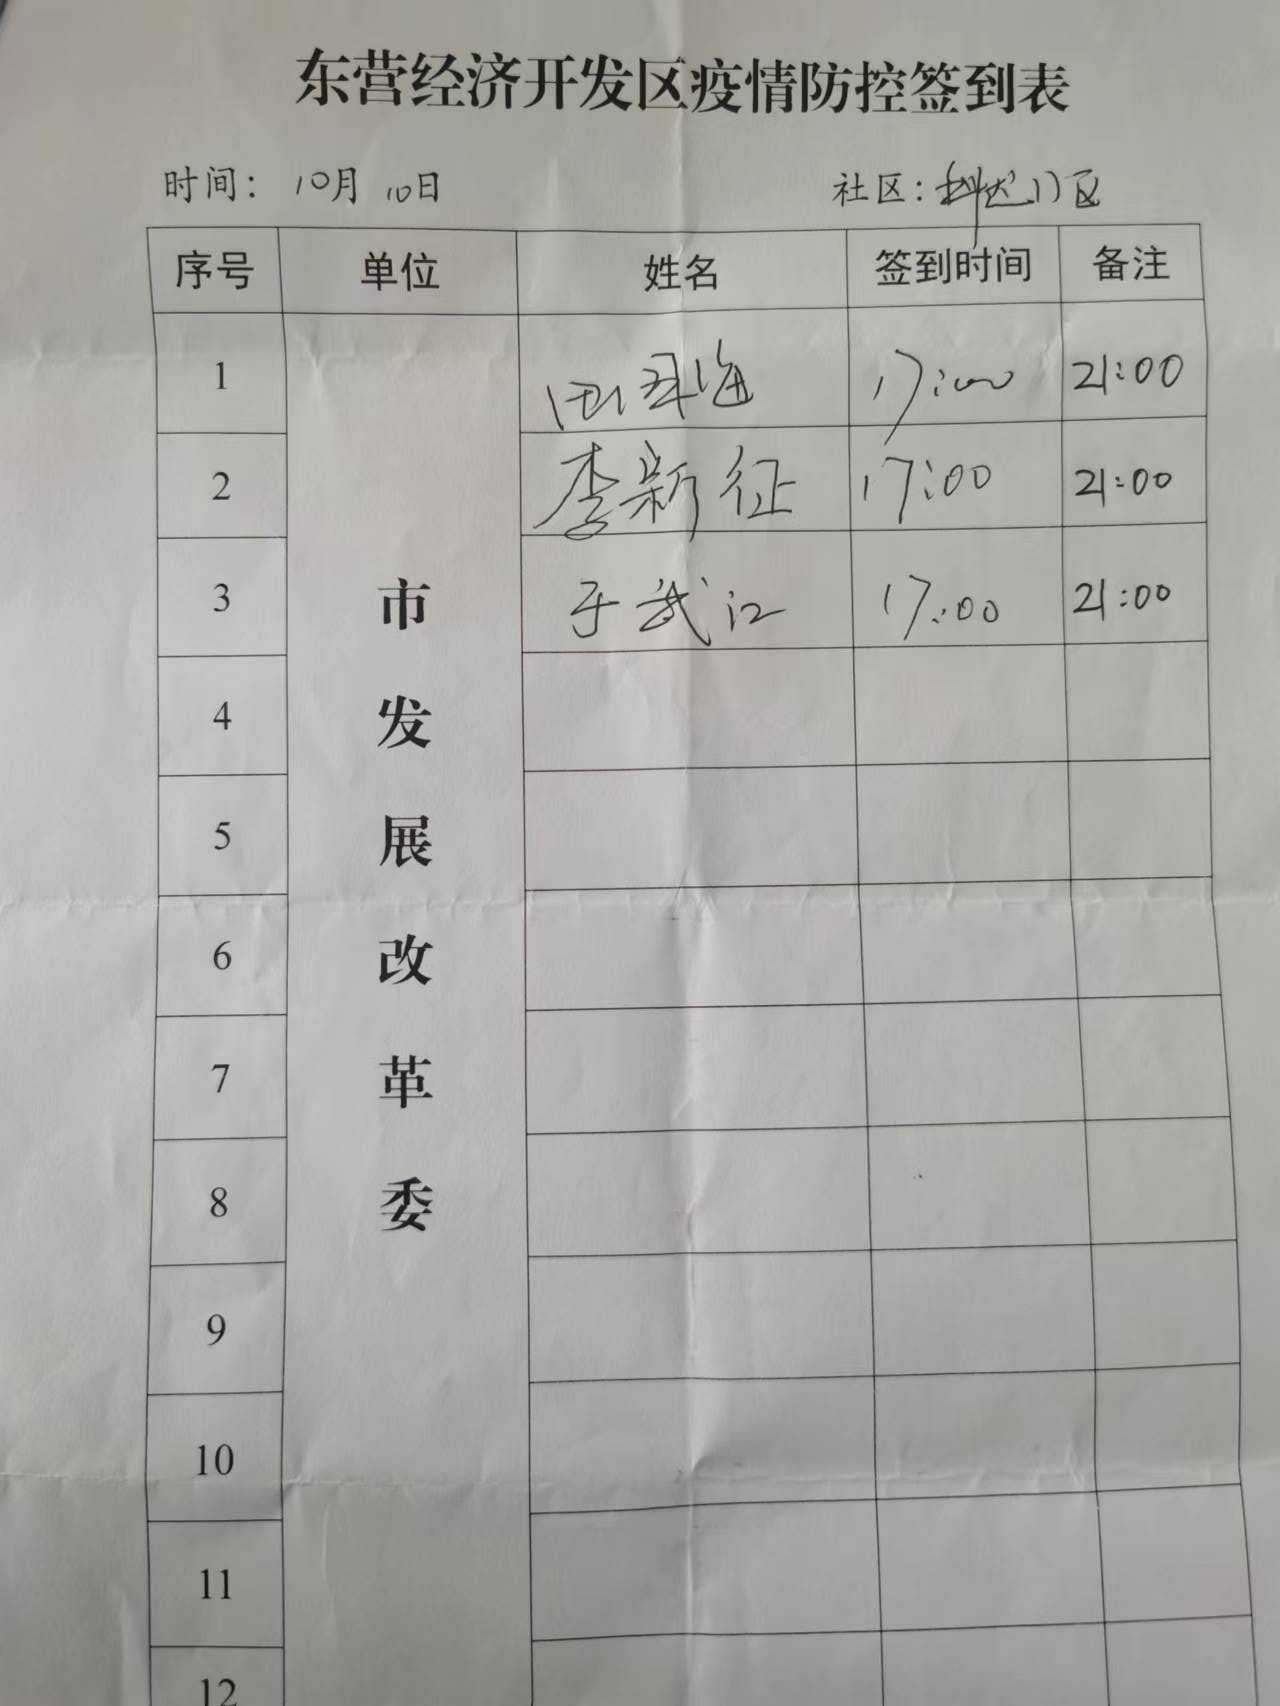 东营经济开发区疫情防控签到表
时间： 10月 10日 社区：科达小区
序号 单位 姓名 签到时间 备注
市发展改革委
1 17:00 21:00
2 李新征 17:00 21:00
3 于武江 17:00 21:00
4
5
6
7
8
9
10
11
12